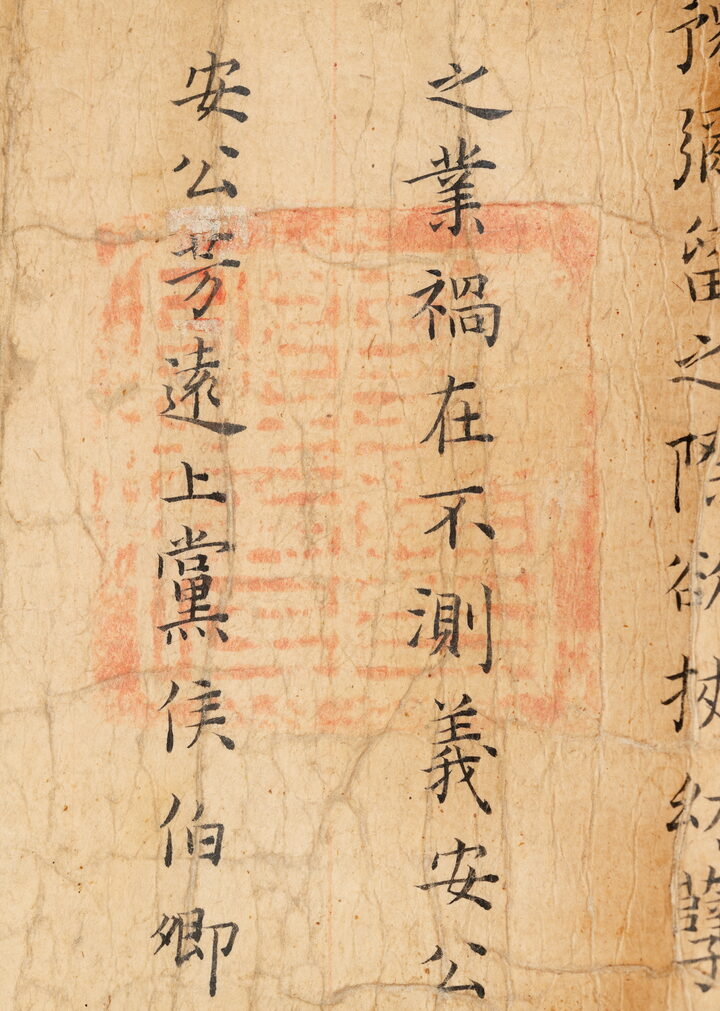 豫彌留之際欲挟幼孽
之業禍在不測義安公
安公芳遠上黨侯伯卿